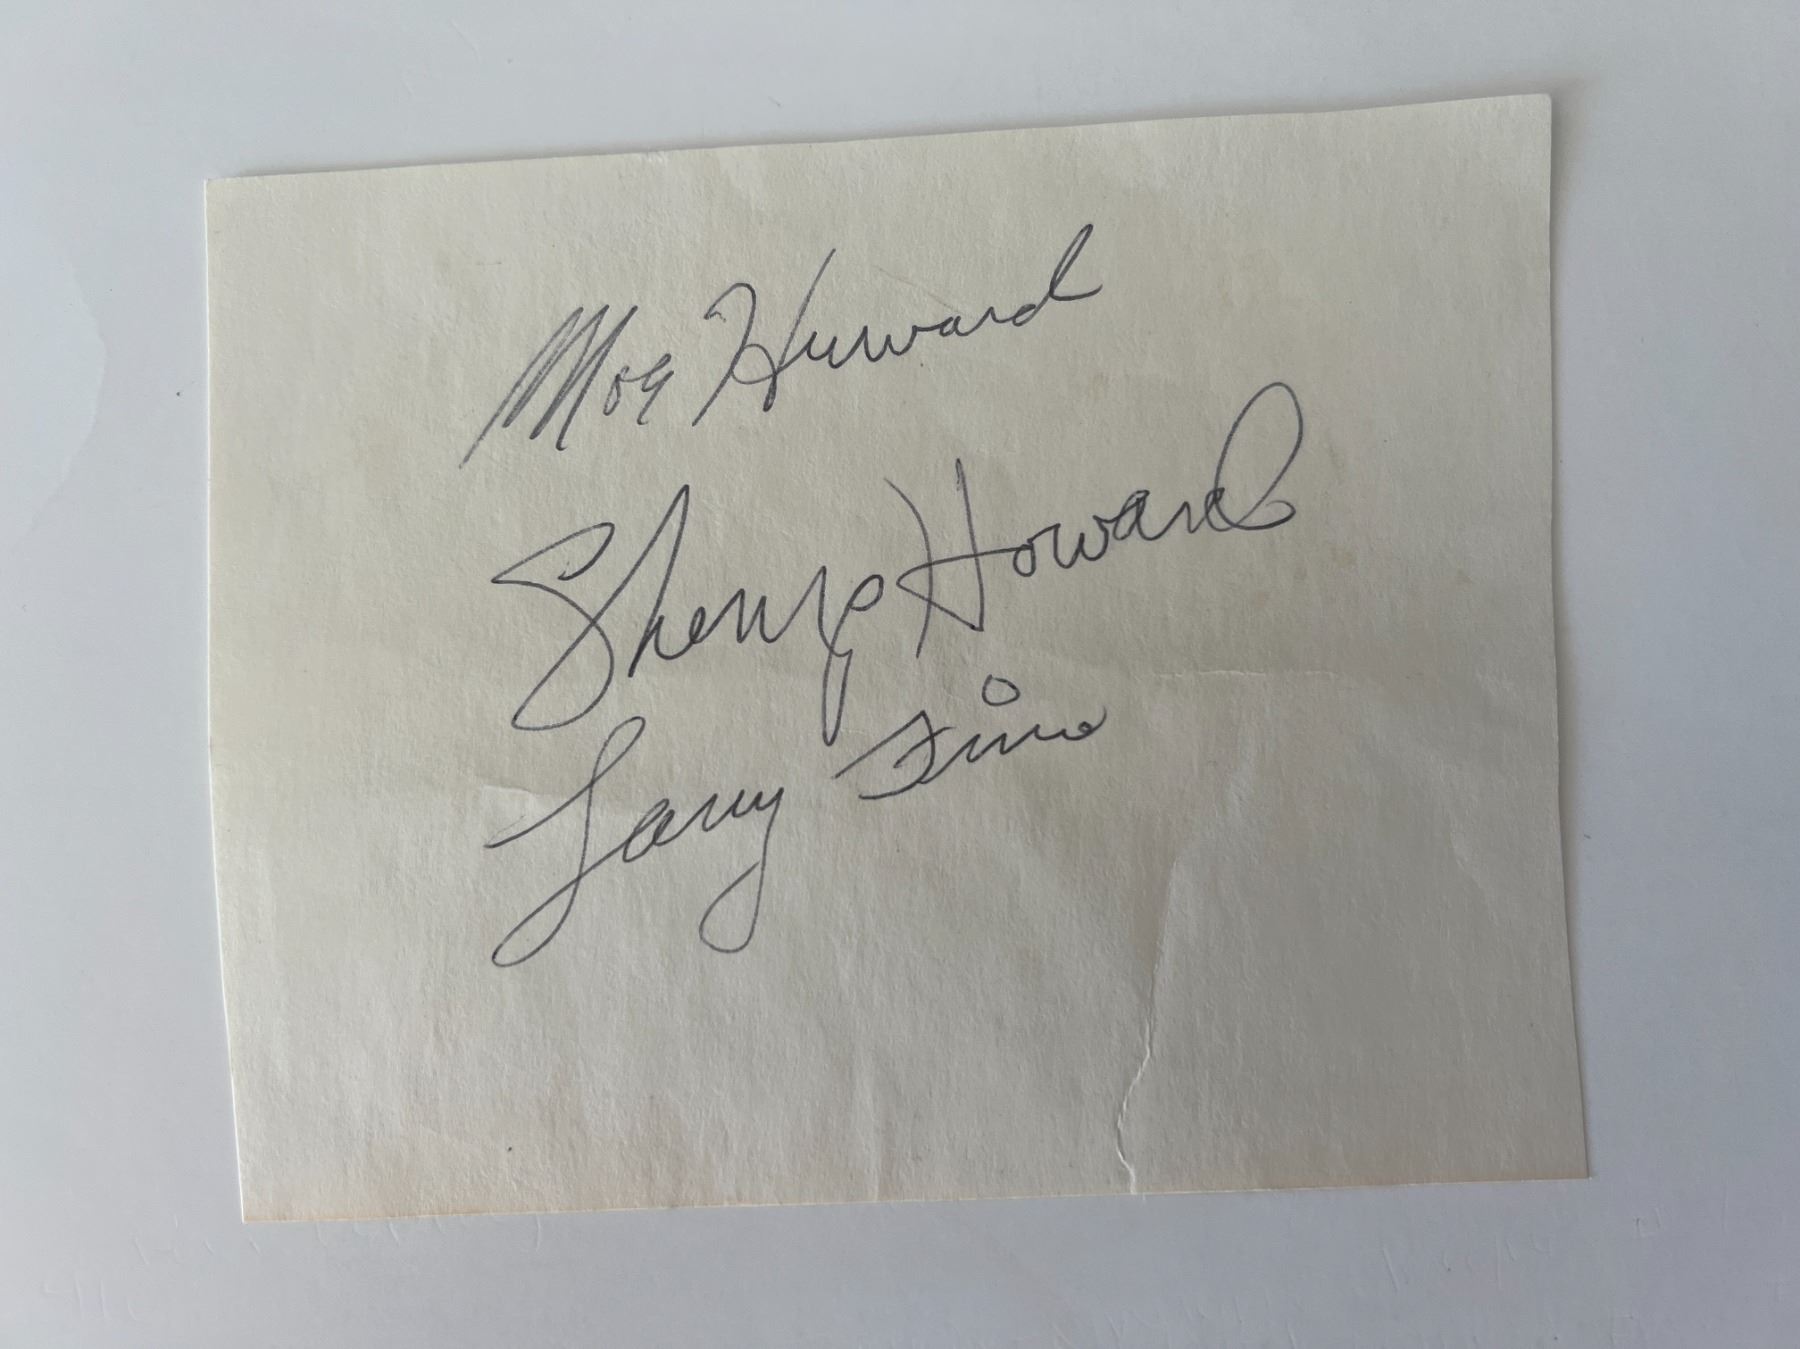 Moe Howard
Shemp Howard
Larry Fine